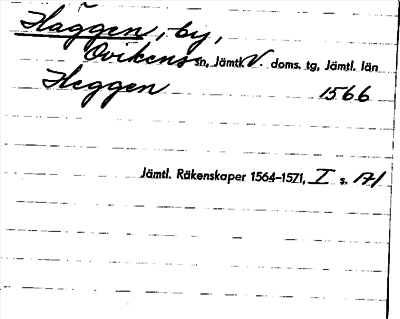 Häggen, by,
Ovikens sn, Jämtl. V. doms. tg, Jämtl. län
Heggen 1566
Jämtl. Räkenskaper 1564–1571, I s. 171